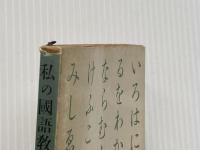 いろはに
るをわか
ならむ
けふこ
みしゑ
私の國語教